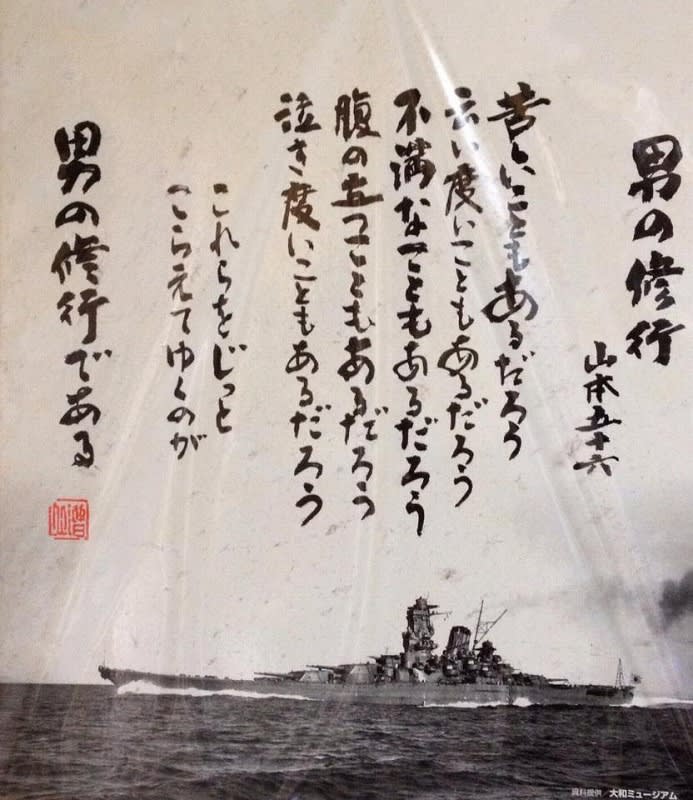 男の修行
山本五十六
苦しいこともあるだろう
云い度いこともあるだろう
不満なこともあるだろう
腹の立つこともあるだろう
泣き度いこともあるだろう
これらをじっと
こらえてゆくのが
男の修行である
資料提供/大和ミュージアム